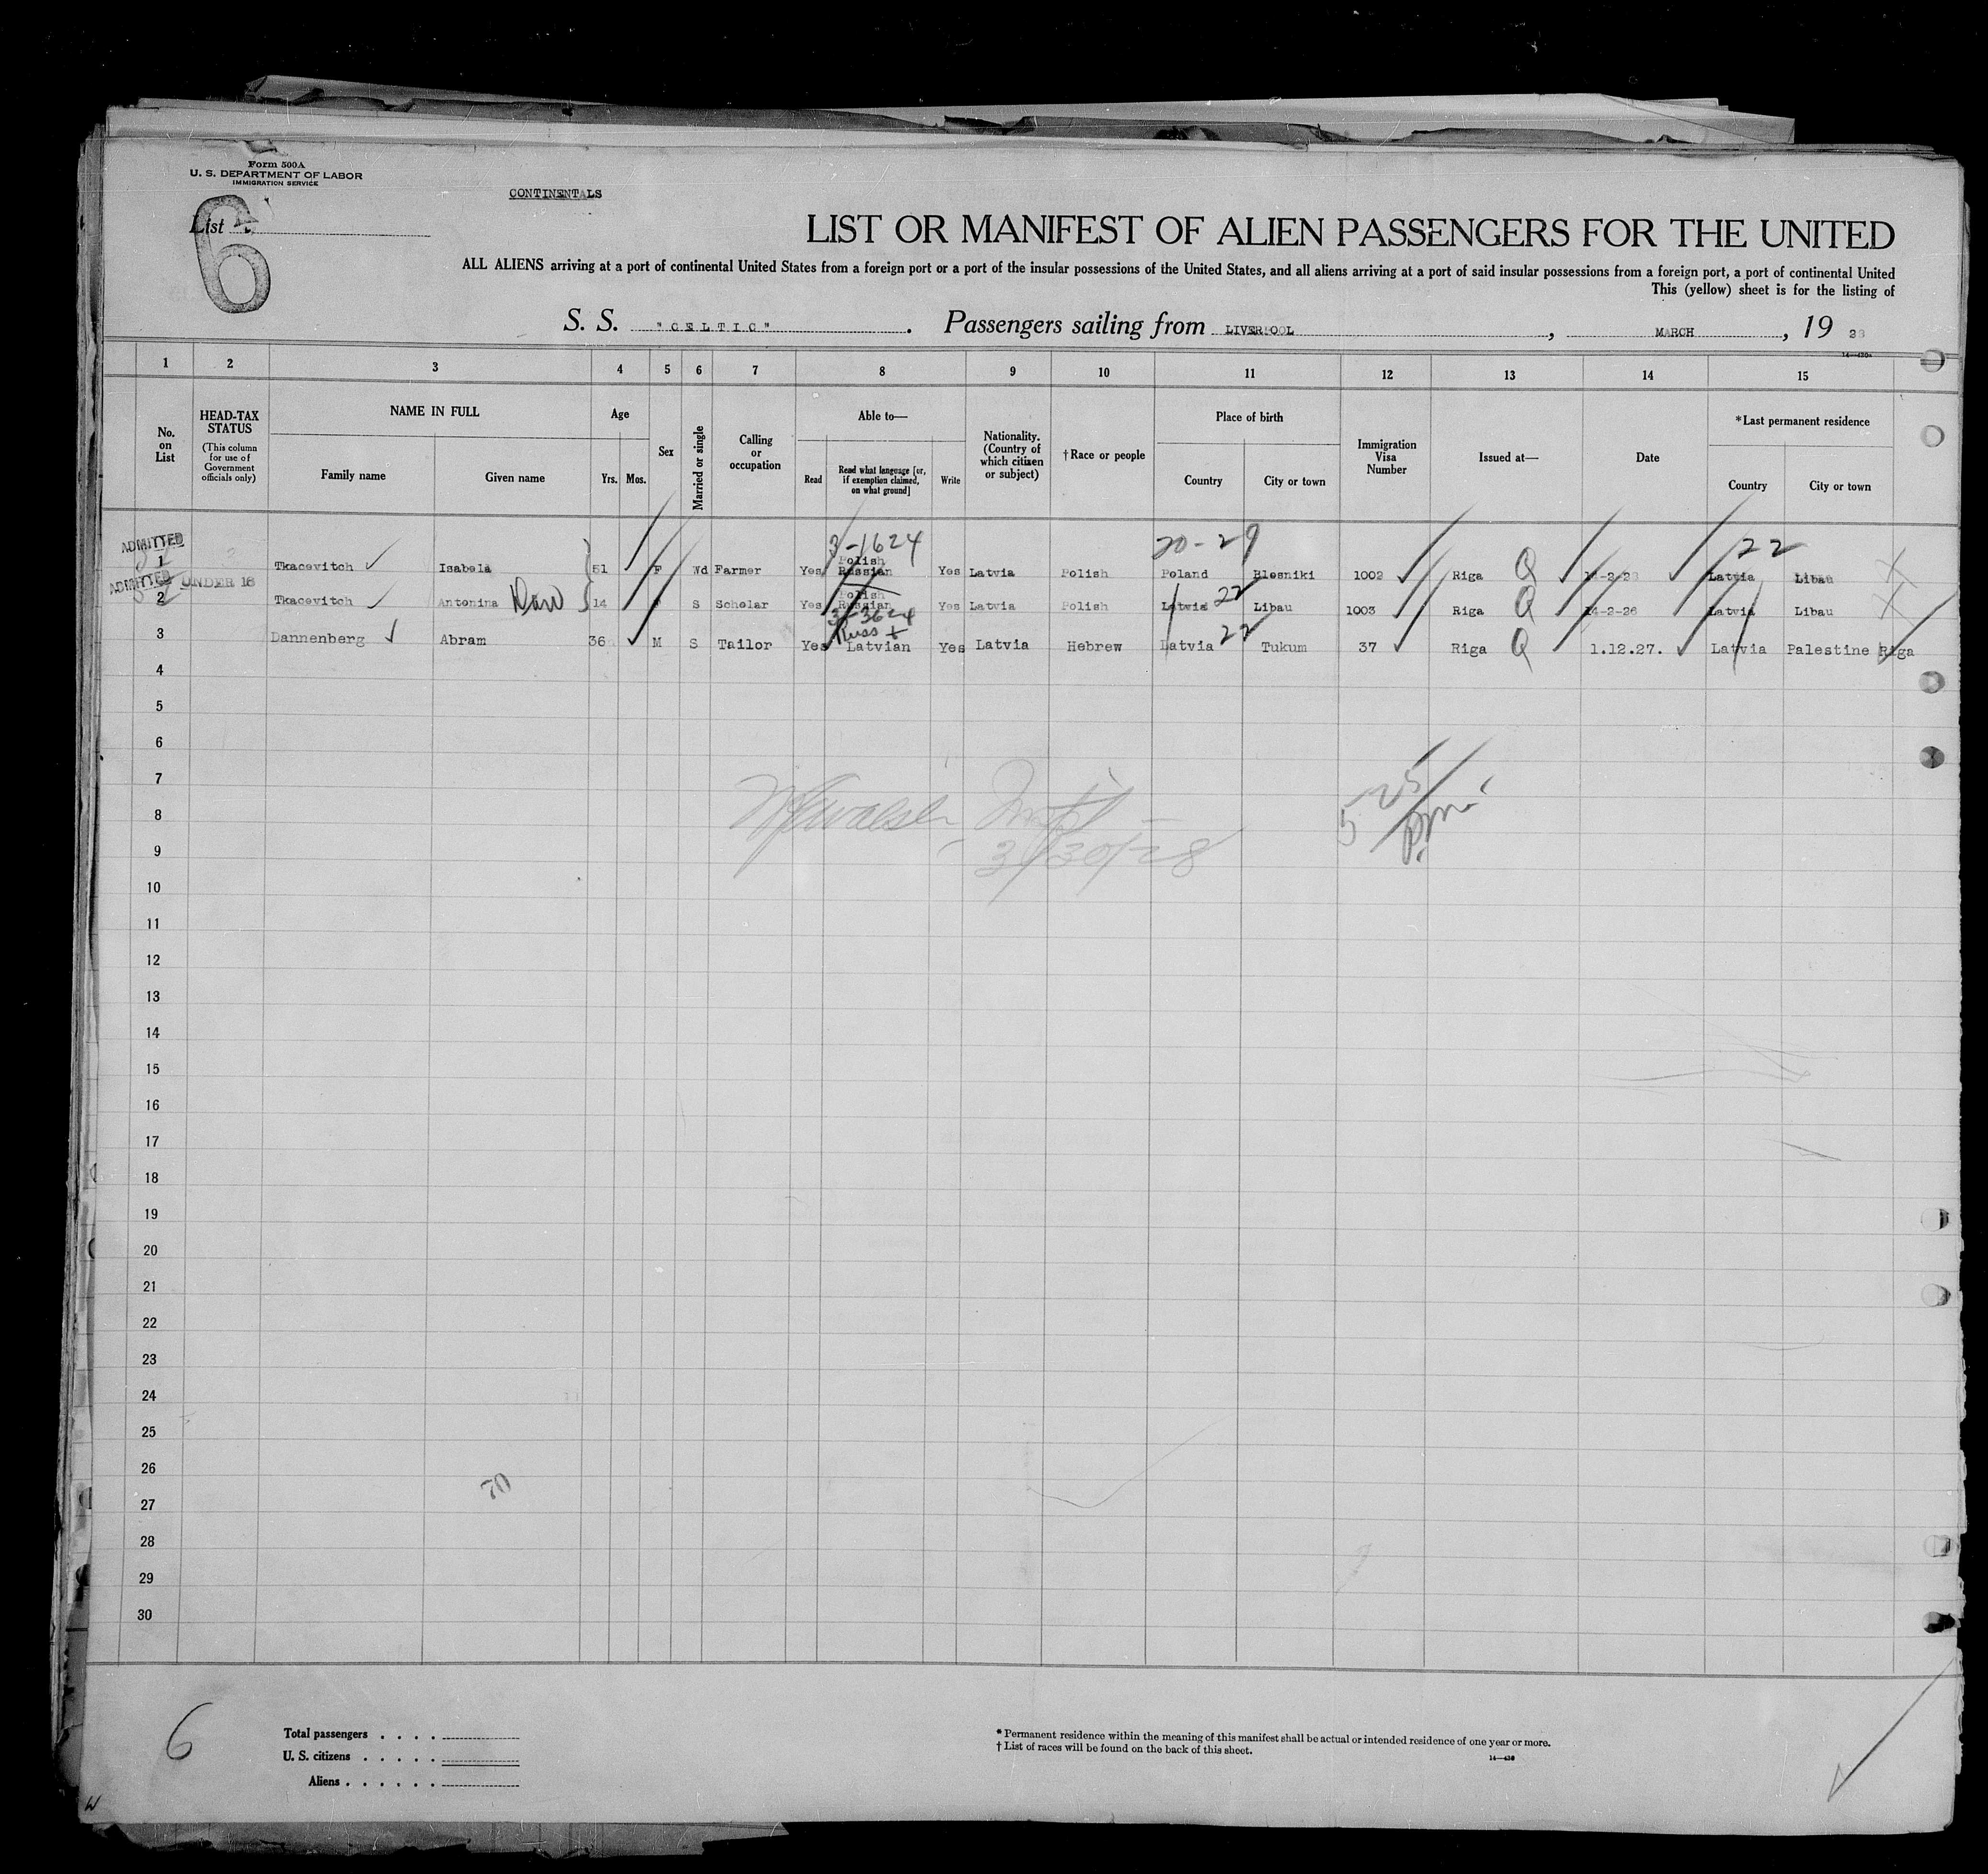 Form 500A
U. S. DEPARTMENT OF LABOR
IMMIGRATION SERVICE
CONTINENTALS
List
6
LIST OR MANIFEST OF ALIEN PASSENGERS FOR THE UNITED
ALL ALIENS arriving at a port of continental United States from a foreign port or a port of the insular possessions of the United States, and all aliens arriving at a port of said insular possessions from a foreign port, a port of continental United
This (yellow) sheet is for the listing of
S. S. "CELTIC". Passengers sailing from LIVERPOOL, MARCH, 19 28
14—420a
1 2 3 4 5 6 7 8 9 10 11 12 13 14 15
No. on List
HEAD-TAX STATUS
(This column for use of Government officials only)
NAME IN FULL
Family name Given name
Age
Yrs. Mos.
Sex
Married or single
Calling or occupation
Able to—
Read
Read what language [or, if exemption claimed, on what ground]
Write
Nationality. (Country of which citizen or subject)
†Race or people
Place of birth
Country City or town
Immigration Visa Number
Issued at—
Date
*Last permanent residence
Country City or town
3-1624 20-29 22
ADMITTED
1 Tkacevitch Isabela 51 F Wd Farmer Yes Polish Russian Yes Latvia Polish Poland Blosniki 1002 Riga Q Latvia Libau X
ADMITTED UNDER 16
2 Tkacevitch Antonina Daw 14 S Scholar Yes Polish Russian Yes Latvia Polish Latvia 22 Libau 1003 Riga Q 14-2-28 Latvia Libau X
3-3624
Russ +
3 Dannenberg Abram 36 M S Tailor Yes Latvian Yes Latvia Hebrew Latvia 22 Tukum 37 Riga Q 1.12.27. Latvia Palestine Riga
4
5
6
7
8
5 25 pm
9
3/30/28
10
11
12
13
14
15
16
17
18
19
20
21
22
23
24
25
26
70
27
28
29
30
6
Total passengers . . . .
U. S. citizens . . . . .
Aliens . . . . . .
* Permanent residence within the meaning of this manifest shall be actual or intended residence of one year or more.
† List of races will be found on the back of this sheet.
14—430
W